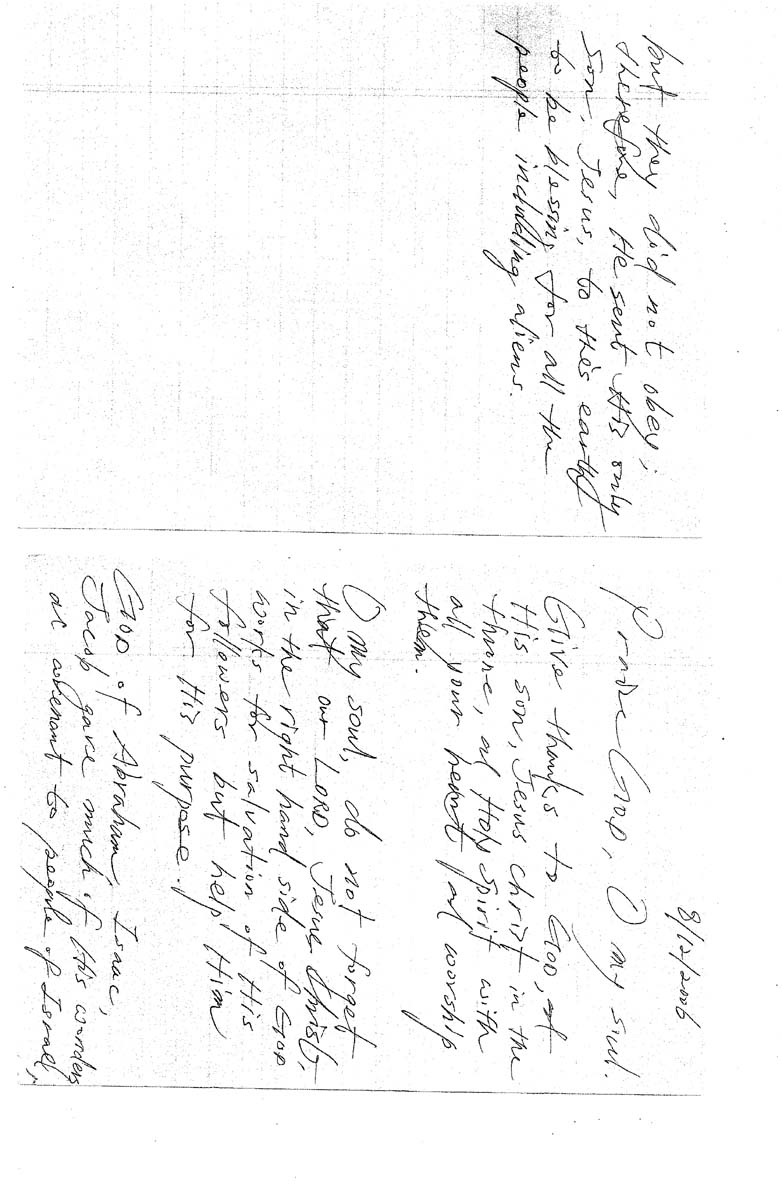 8/12/2006
Praise God, O my soul.
Give thanks to God, at
His son, Jesus Christ in the
throne, ad Holy Spirit with
all your heart ad worship
them.
O my soul, do not forget
that our LORD, Jesus Christ,
in the right hand side of God
works for salvation of His
followers but help Him
for His purpose.
God of Abraham, Isaac,
Jacob gave much of His wonders
as covenant to people of Israel,
but they did not obey;
therefore, He sent His only
Son, Jesus, to this earth
to be blessing for all the
people including aliens.